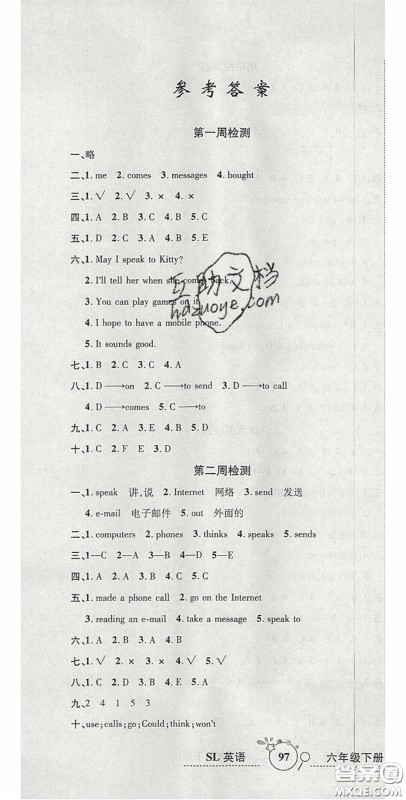 参考答案
第一周检测
一、略
二、1. me 2. comes 3. messages 4. bought
三、1. √ 2. √ 3. × 4. × 5. √
四、1. A 2. B 3. C 4. A 5. C
五、1. D 2. C 3. A 4. B 5. E
六、1. May I speak to Kitty?
2. I'll tell her when she comes back.
3. You can play games on it.
4. I hope to have a mobile phone.
5. It sounds good.
七、1. B 2. C 3. A 4. C 5. A
八、1. D→on 2. C→to send 3. D→to call
4. D→comes 5. C→to
十、1. C 2. F E 3. D
第二周检测
一、1. speak 讲,说 2. Internet 网络 3. send 发送
4. e-mail 电子邮件 5. out 外面的
二、1. computers 2. phones 3. thinks 4. speaks 5. sends
三、1—C 2—A 3—D 4—B
四、1. B 2. C 3. A 4. A 5. C
五、1. made a phone call 2. go on the Internet
3. reading an e-mail 4. take a message 5. speak to
六、1. B 2. A 3. A 4. B 5. A
七、1. C 2. D 3. A 4. B
八、1. √ 2. √ 3. × 4. × 5. √
九、2 4 1 5 3
十、use;calls;go;Could;think;won't
互助文档
hdzuoye.com
SL 英语 97 六年级下册
答案圈
MXQE.COM